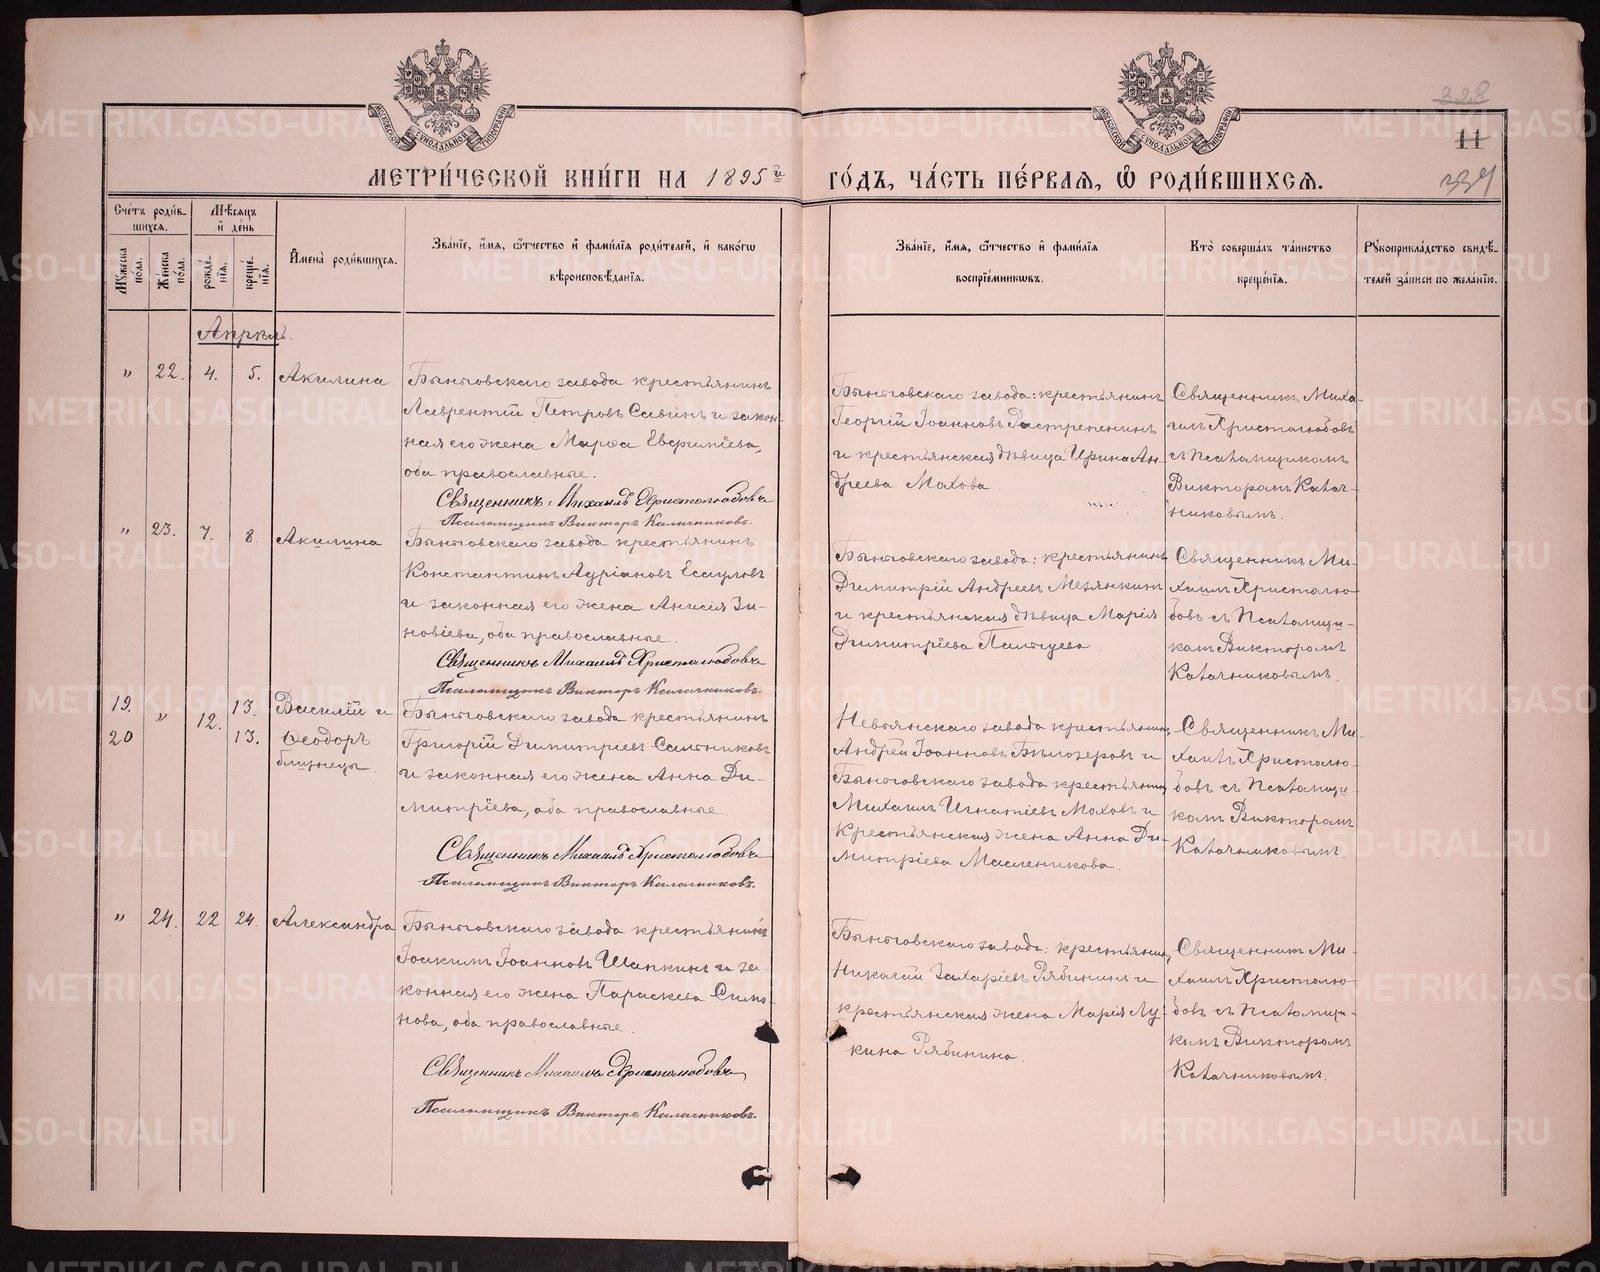 МОСКОВСКОЙ СѴНОДАЛЬНОЙ ТИПОГРАФІИ
МОСКОВСКОЙ СѴНОДАЛЬНОЙ ТИПОГРАФІИ
328
11
334
МЕТРИ́ЧЕСКОЙ КНИ́ГИ НА 1895й ГО́ДЪ, ЧА́СТЬ ПЕ́РВАЯ, Ѡ РОДИ́ВШИХСЯ.
Сче́тъ роди́в-
шихся.
Мѣ́сяцъ
и҆ де́нь
Мꙋ́жеска
по́ла.
Же́нска
по́ла.
рожде́-
нїя.
креще́-
нїя.
И҆мена̀ роди́вшихся.
Зва́нїе, и҆́мя, ѻ҆́тчество и҆ фами́лїя роди́телей, и҆ како́гѡ
вѣроисповѣ́данїя.
Зва́нїе, и҆́мя, ѻ҆́тчество и҆ фами́лїя
воспрїе́мникѡвъ.
Кто̀ соверша́лъ та́инство
креще́нїя.
Рꙋкоприкла́дство свидѣ́-
телей за́писи по жела́нїю.
Апрѣль.
" 22. 4. 5. Акилина.
Быньговскаго завода крестьянинъ
Лаврентій Петровъ Савинъ и закон
ная его жена Марѳа Евѳиміева,
оба православные.
Священникъ Михаилъ Христолюбовъ
Псаломщикъ Викторъ Калачниковъ.
Быньговскаго завода: крестьянинъ
Георгій Іоанновъ Растрепенинъ
и крестьянская дѣвица Ирина Ан-
дреева Махова.
Священникъ Миха-
илъ Христолюбовъ
съ Псаломщикомъ
Викторомъ Калач-
никовымъ.
" 23. 7. 8. Акилина
Быньговскаго завода крестьянинъ
Константинъ Адріановъ Есауловъ
и законная его жена Анисія Зи-
новіева, оба православные.
Священникъ Михаилъ Христолюбовъ
Псаломщикъ Викторъ Калачниковъ.
Быньговскаго завода: крестьянинъ
Димитрій Андреевъ Мезянкинъ
и крестьянская дѣвица Марія
Димитріева
Священникъ Ми-
хаилъ Христолю
бовъ съ Псаломщи-
комъ Викторомъ
Калачниковымъ.
19. " 12. 13. Василій и
20 13. Ѳеодоръ
близнецы.
Быньговскаго завода крестьянинъ
Григорій Димитріевъ Сантниковъ
и законная его жена Анна Ди-
митріева, оба православные
Священникъ Михаилъ Христолюбовъ
Псаломщикъ Викторъ Калачниковъ.
Невьянскаго завода крестьянинъ
Андрей Іоанновъ Бѣлозеровъ и
Быньговскаго завода крестьянинъ
Михаилъ Игнатіевъ Маховъ и
Крестьянская жена Анна Ди-
митріева Масленикова.
Священникъ Ми-
хаилъ Христолю
бовъ съ Псаломщи
комъ Викторомъ
Калачниковымъ.
" 24. 22 24. Александра
Быньговскаго завода крестьянинъ
Іоакимъ Іоанновъ Шапкинъ и за-
конная его жена Параскева Симо-
нова, оба православные.
Священникъ Михаилъ Христолюбовъ
Псаломщикъ Викторъ Калачниковъ.
Быньговскаго завода: крестьянинъ,
Николай Захаріевъ Рябининъ и
крестьянская жена Марія Лу-
кина Рябинина.
Священникъ Ми-
хаилъ Христолю
бовъ съ Псаломщи-
комъ Викторомъ
Калачниковымъ.
METRIKI.GASO-URAL.RU